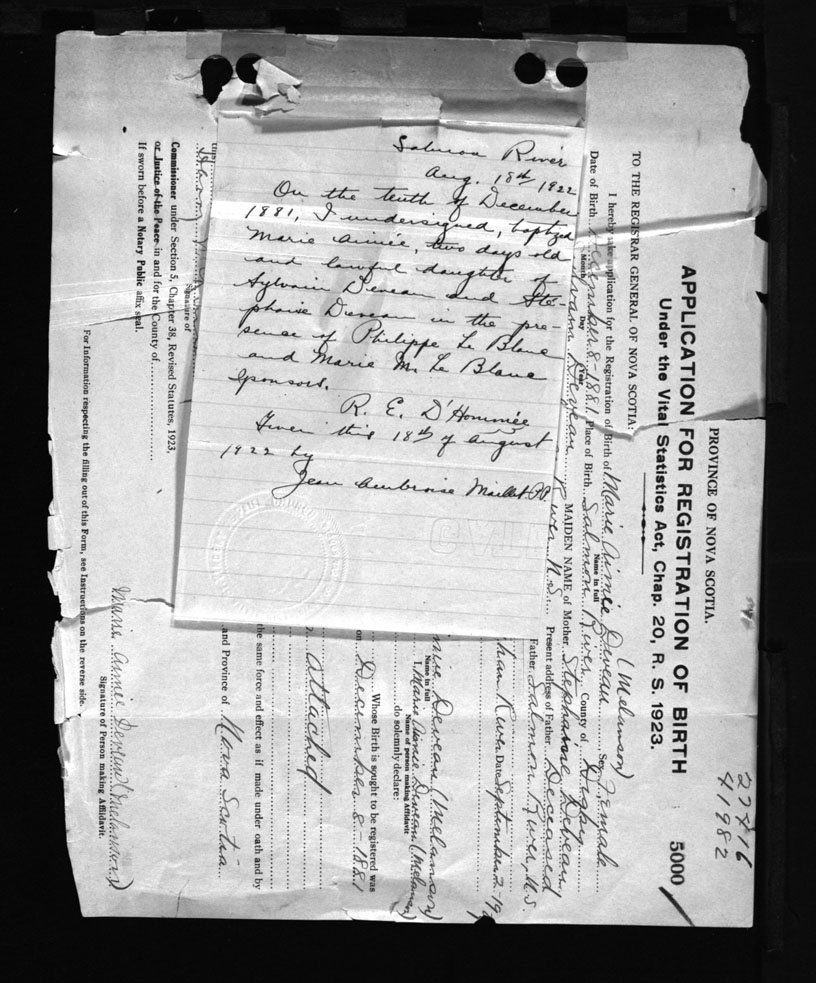 Salmon River
Aug. 18th 1922
On the tenth of December
1881, I undersigned, baptized
Marie Aimée, two days old
and lawful daughter of
Sylvain Deveau and Sté-
phanie Deveau in the pre-
sence of Philippe Le Blanc
and Marie M. Le Blanc
sponsors.
R. E. D'Hommée
Given this 18th of August
1922 by
Jean Ambroise Maillet
27416
41982
PROVINCE OF NOVA SCOTIA.
APPLICATION FOR REGISTRATION OF BIRTH 5000
Under the Vital Statistics Act, Chap. 20, R. S. 1923.
TO THE REGISTRAR GENERAL OF NOVA SCOTIA:
(Melanson)
I hereby make application for the Registration of Birth of Marie Aimée Deveau Sex Female
Name in full
Date of Birth December 8 - 1881 Place of Birth Salmon River County of Digby
Month Day Year
Deveau MAIDEN NAME of Mother Deveau
River N.S. Present address of Father Deceased
Father Salmon River, N.S.
River Date September 2 - 19
Deveau (Melanson)
Name in full
I, Marie Aimée Deveau (Melanson)
Name of person making Affidavit
do solemnly declare:
Whose Birth is sought to be registered was
on December 8 - 1881
attached
the same force and effect as if made under oath and by
and Province of Nova Scotia
this
Signature of
Commissioner under Section 5, Chapter 38, Revised Statutes, 1923,
or Justice of the Peace in and for the County of
If sworn before a Notary Public affix seal.
Marie Aimée Deveau (Melanson)
Signature of Person making Affidavit.
For Information respecting the filling out of this Form, see Instructions on the reverse side.